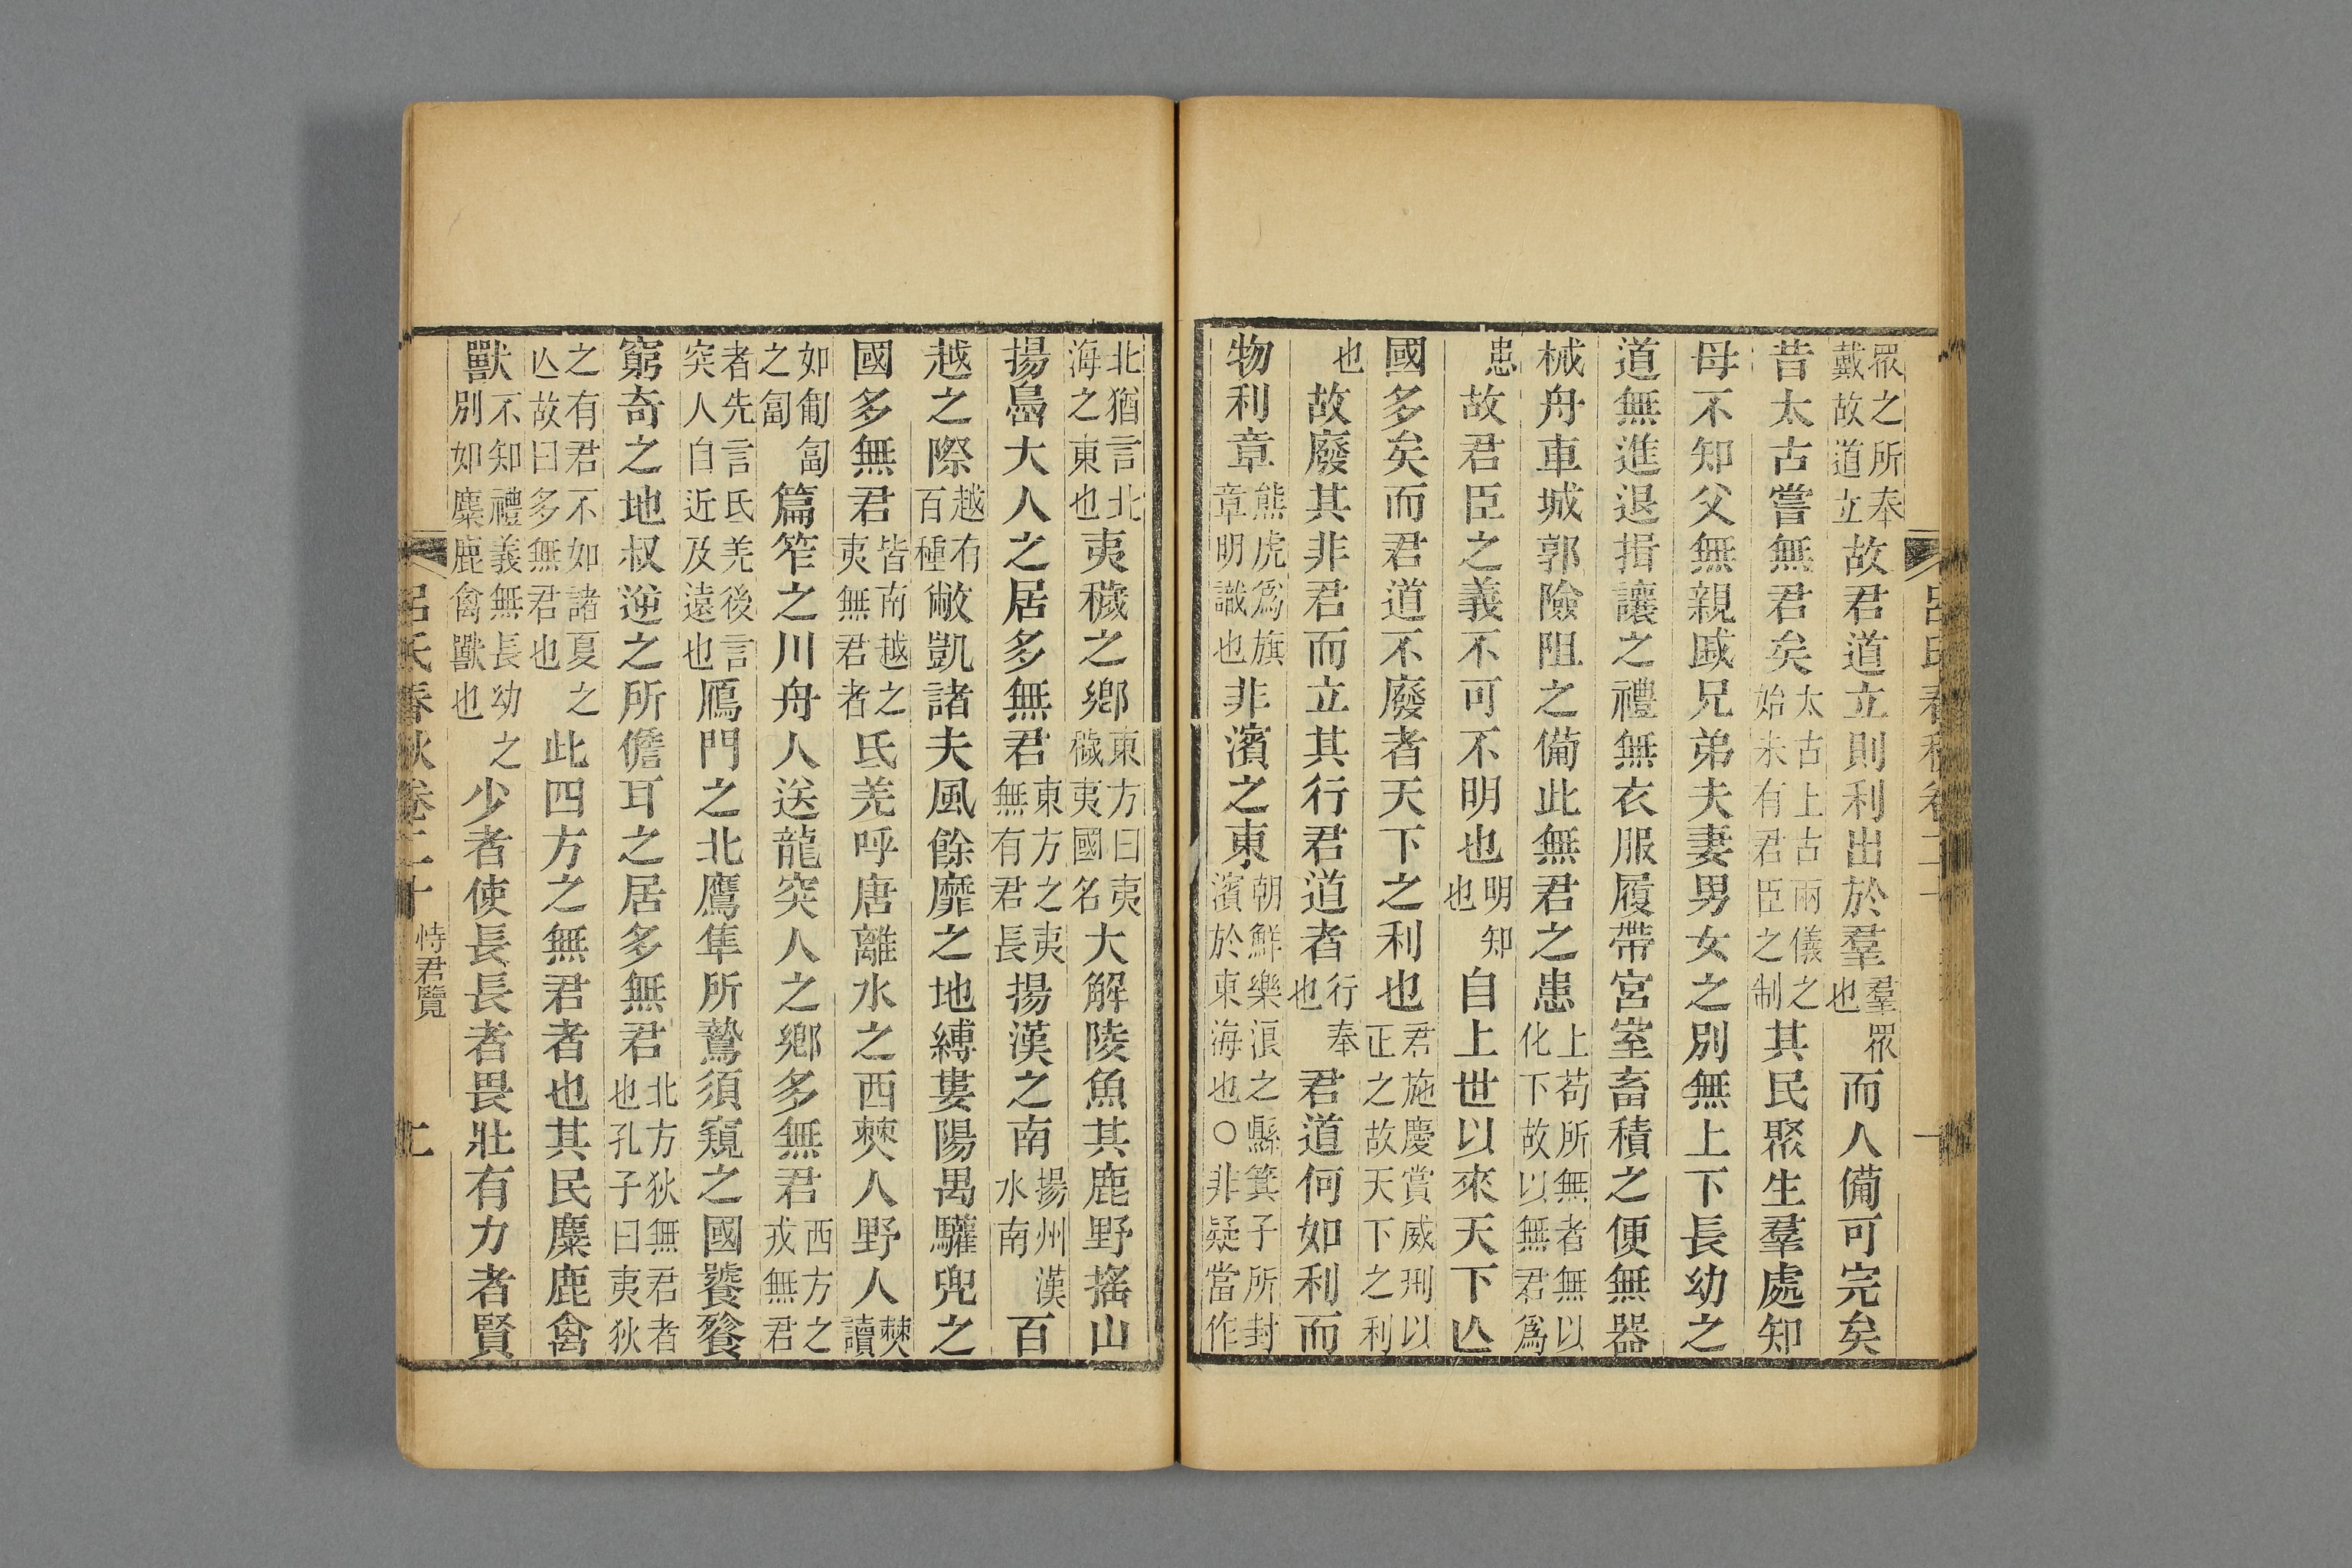 衆之所奉戴故道立故君道立則利出於羣羣衆也而人備可完矣
昔太古嘗無君矣太古上古兩儀之始未有君臣之制其民聚生羣處知
母不知父無親戚兄弟夫妻男女之別無上下長幼之
道無進退揖讓之禮無衣服履帶宮室畜積之便無器
械舟車城郭險阻之備此無君之患上苟所無者無以化下故以無君爲
患故君臣之義不可不明也明知也自上世以來天下亾
國多矣而君道不廢者天下之利也君施慶賞威刑以正之故天下之利
也故廢其非君而立其行君道者行奉也君道何如利而
物利章熊虎爲旗章明識也非濱之東朝鮮樂浪之縣箕子所封濱於東海也○非疑當作
北猶言北海之東也夷穢之鄉東方曰夷穢夷國名大解陵魚其鹿野搖山
揚島大人之居多無君東方之夷無有君長揚漢之南揚州漢水南百
越之際越有百種敝凱諸夫風餘靡之地縛婁陽禺驩兜之
國多無君皆南越之夷無君者氐羌呼唐離水之西僰人野人僰讀
如匍匐之匐篇笮之川舟人送龍突人之鄉多無君西方之戎無君
者先言氐羌後言突人自近及遠也鴈門之北鷹隼所鷙須窺之國饕餮
窮奇之地叔逆之所儋耳之居多無君北方狄無君者也孔子曰夷狄
之有君不如諸夏之亾故曰多無君也此四方之無君者也其民麋鹿禽
獸不知禮義無長幼之別如麋鹿禽獸也少者使長長者畏壯有力者賢
呂氏春秋卷二十 恃君覽 二